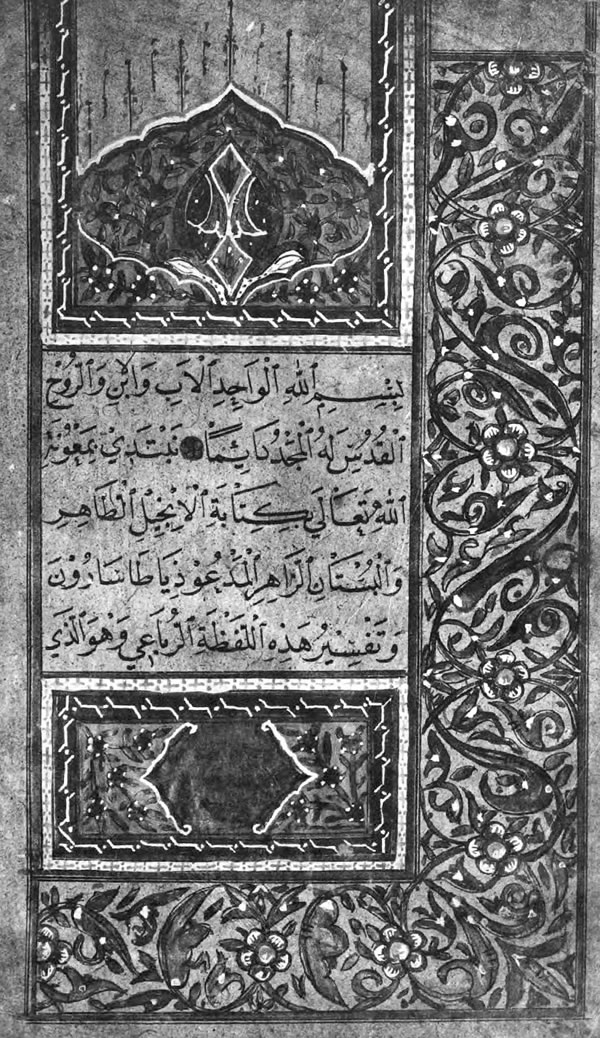 بِسْمِ ٱللهِ ٱلْوَاحِدِ ٱلْاَبِ وَٱلاِبْنِ وَٱلرُّوْحِ
ٱلْقُدُسِ لَهُ ٱلْمَجْدُ دَائِمًا نَبْتَدِيْ بِمَعُوْنَةِ
ٱللهِ تَعَالَى بِكِتَابَةِ ٱلْاِنْجِيْلِ ٱلْطَاهِرِ
وَٱلْبُسْتَانِ ٱلْزَاهِرِ ٱلْمَدْعُوْ ذِيَاطَاسَارُوْنَ
وَتَفْسِيْرُ هَذِهِ ٱللَّفْظَةِ ٱلْرُبَاعِي وَهُوَ ٱلَّذِي